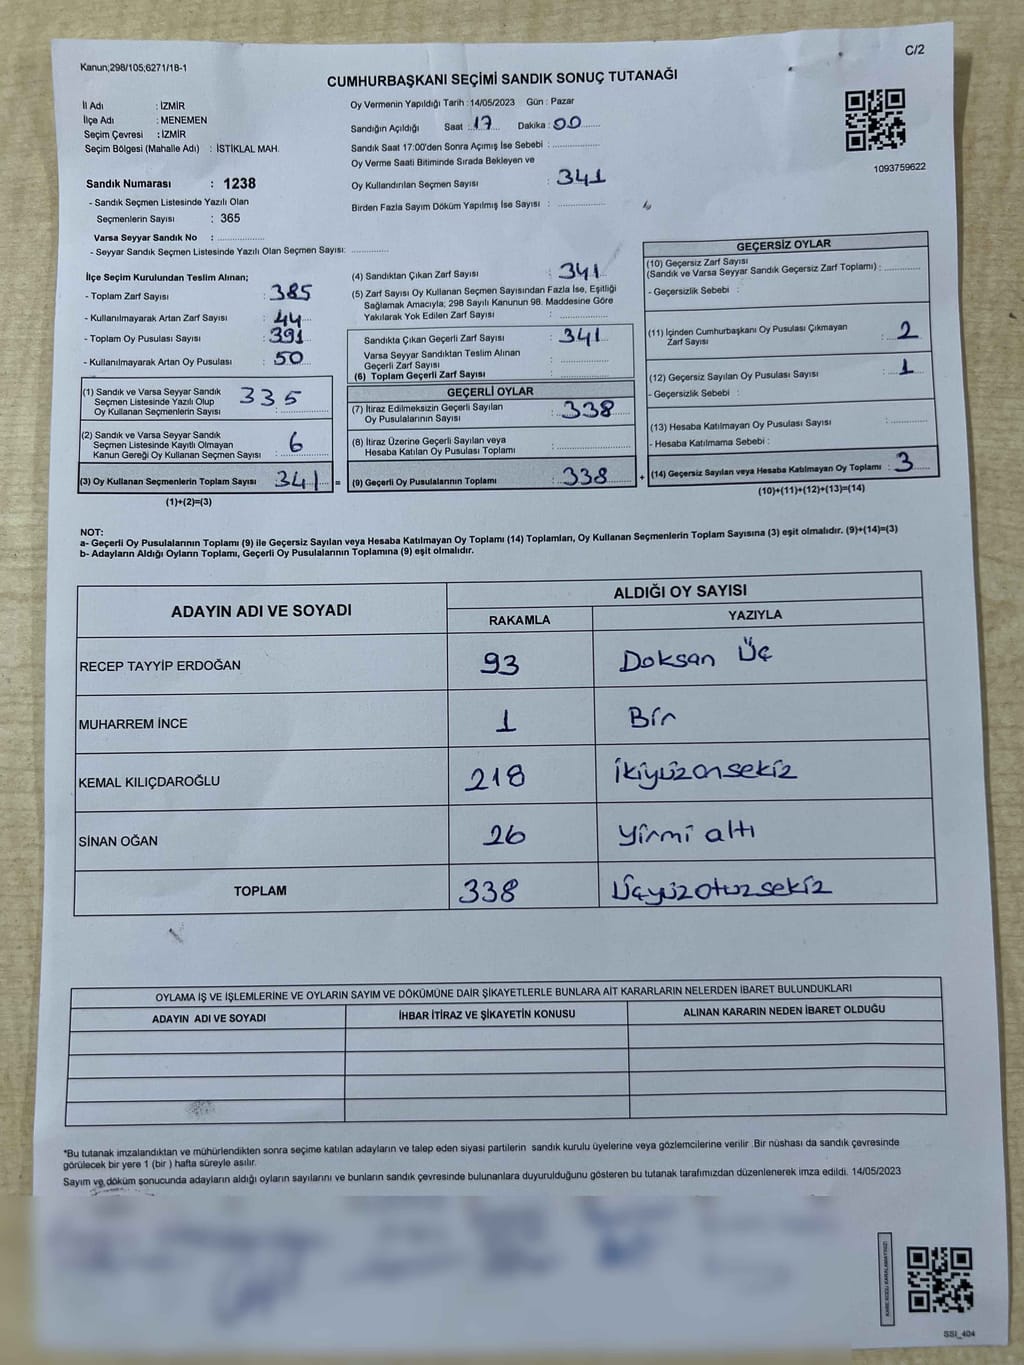 Kanun;298/105;6271/18-1
C/2
CUMHURBAŞKANI SEÇİMİ SANDIK SONUÇ TUTANAĞI
İl Adı : İZMİR
İlçe Adı : MENEMEN
Seçim Çevresi : İZMİR
Seçim Bölgesi (Mahalle Adı) : İSTİKLAL MAH.
Sandık Numarası : 1238
- Sandık Seçmen Listesinde Yazılı Olan
Seçmenlerin Sayısı : 365
Varsa Seyyar Sandık No : ..................
- Seyyar Sandık Seçmen Listesinde Yazılı Olan Seçmen Sayısı: ..............
Oy Vermenin Yapıldığı Tarih : 14/05/2023 Gün : Pazar
Sandığın Açıldığı Saat : 17 Dakika : 00
Sandık Saat 17:00'den Sonra Açımış İse Sebebi : ..................
Oy Verme Saati Bitiminde Sırada Bekleyen ve
Oy Kullandırılan Seçmen Sayısı : 341
Birden Fazla Sayım Döküm Yapılmış İse Sayısı : ..................
1093759622
İlçe Seçim Kurulundan Teslim Alınan;
- Toplam Zarf Sayısı : 385
- Kullanılmayarak Artan Zarf Sayısı : 44
- Toplam Oy Pusulası Sayısı : 391
- Kullanılmayarak Artan Oy Pusulası : 50
(1) Sandık ve Varsa Seyyar Sandık
Seçmen Listesinde Yazılı Olup
Oy Kullanan Seçmenlerin Sayısı : 335
(2) Sandık ve Varsa Seyyar Sandık
Seçmen Listesinde Kayıtlı Olmayan
Kanun Gereği Oy Kullanan Seçmen Sayısı : 6
(3) Oy Kullanan Seçmenlerin Toplam Sayısı : 341 =
(1)+(2)=(3)
(4) Sandıktan Çıkan Zarf Sayısı : 341
(5) Zarf Sayısı Oy Kullanan Seçmen Sayısından Fazla İse, Eşitliği
Sağlamak Amacıyla; 298 Sayılı Kanunun 98. Maddesine Göre
Yakılarak Yok Edilen Zarf Sayısı : ..................
Sandıkta Çıkan Geçerli Zarf Sayısı : 341
Varsa Seyyar Sandıktan Teslim Alınan
Geçerli Zarf Sayısı : ..................
(6) Toplam Geçerli Zarf Sayısı : ..................
GEÇERLİ OYLAR
(7) İtiraz Edilmeksizin Geçerli Sayılan
Oy Pusulalarının Sayısı : 338
(8) İtiraz Üzerine Geçerli Sayılan veya
Hesaba Katılan Oy Pusulası Toplamı : ..................
(9) Geçerli Oy Pusulalarının Toplamı : 338 +
GEÇERSİZ OYLAR
(10) Geçersiz Zarf Sayısı
(Sandık ve Varsa Seyyar Sandık Geçersiz Zarf Toplamı) : ............
- Geçersizlik Sebebi :
(11) İçinden Cumhurbaşkanı Oy Pusulası Çıkmayan
Zarf Sayısı : 2
(12) Geçersiz Sayılan Oy Pusulası Sayısı : 1
- Geçersizlik Sebebi :
(13) Hesaba Katılmayan Oy Pusulası Sayısı : ............
- Hesaba Katılmama Sebebi :
(14) Geçersiz Sayılan veya Hesaba Katılmayan Oy Toplamı : 3
(10)+(11)+(12)+(13)=(14)
NOT:
a- Geçerli Oy Pusulalarının Toplamı (9) ile Geçersiz Sayılan veya Hesaba Katılmayan Oy Toplamı (14) Toplamları, Oy Kullanan Seçmenlerin Toplam Sayısına (3) eşit olmalıdır. (9)+(14)=(3)
b- Adayların Aldığı Oyların Toplamı, Geçerli Oy Pusulalarının Toplamına (9) eşit olmalıdır.
ADAYIN ADI VE SOYADI
ALDIĞI OY SAYISI
RAKAMLA YAZIYLA
RECEP TAYYİP ERDOĞAN 93 Doksan Üç
MUHARREM İNCE 1 Bir
KEMAL KILIÇDAROĞLU 218 İkiyüzonsekiz
SİNAN OĞAN 26 Yirmi altı
TOPLAM 338 Üçyüzotuzsekiz
OYLAMA İŞ VE İŞLEMLERİNE VE OYLARIN SAYIM VE DÖKÜMÜNE DAİR ŞİKAYETLERLE BUNLARA AİT KARARLARIN NELERDEN İBARET BULUNDUKLARI
ADAYIN ADI VE SOYADI İHBAR İTİRAZ VE ŞİKAYETİN KONUSU ALINAN KARARIN NEDEN İBARET OLDUĞU
*Bu tutanak imzalandıktan ve mühürlendikten sonra seçime katılan adayların ve talep eden siyasi partilerin sandık kurulu üyelerine veya gözlemcilerine verilir .Bir nüshası da sandık çevresinde
görülecek bir yere 1 (bir ) hafta süreyle asılır.
Sayım ve döküm sonucunda adayların aldığı oyların sayılarını ve bunların sandık çevresinde bulunanlara duyurulduğunu gösteren bu tutanak tarafımızdan düzenlenerek imza edildi. 14/05/2023
KARE KODU KARALAMAYINIZ!
SSI_404